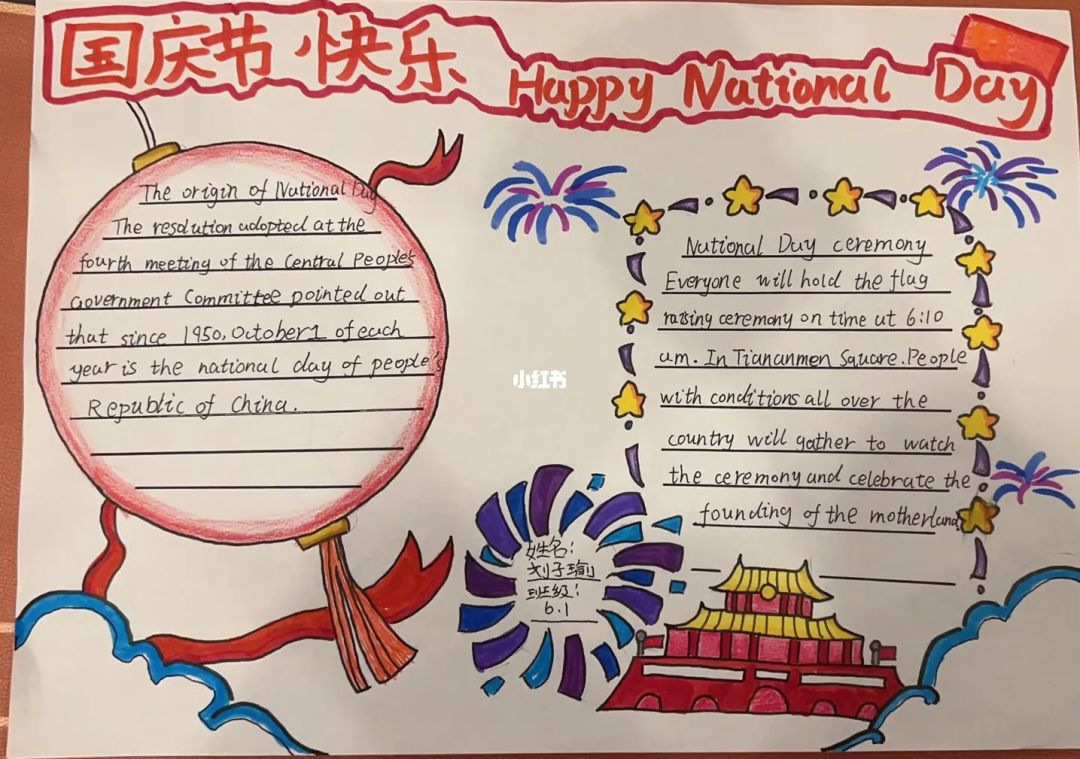 国庆节快乐
Happy National Day
The origin of National Day
The resolution adopted at the
fourth meeting of the Central People's
Government Committee pointed out
that since 1950, October 1 of each
year is the national day of people's
Republic of China.
小红书
National Day ceremony
Everyone will hold the flag
raising ceremony on time at 6:10
am. In Tiananmen Square. People
with conditions all over the
country will gather to watch
the ceremony and celebrate the
founding of the motherland
姓名:
刘子瑜
班级:
6.1